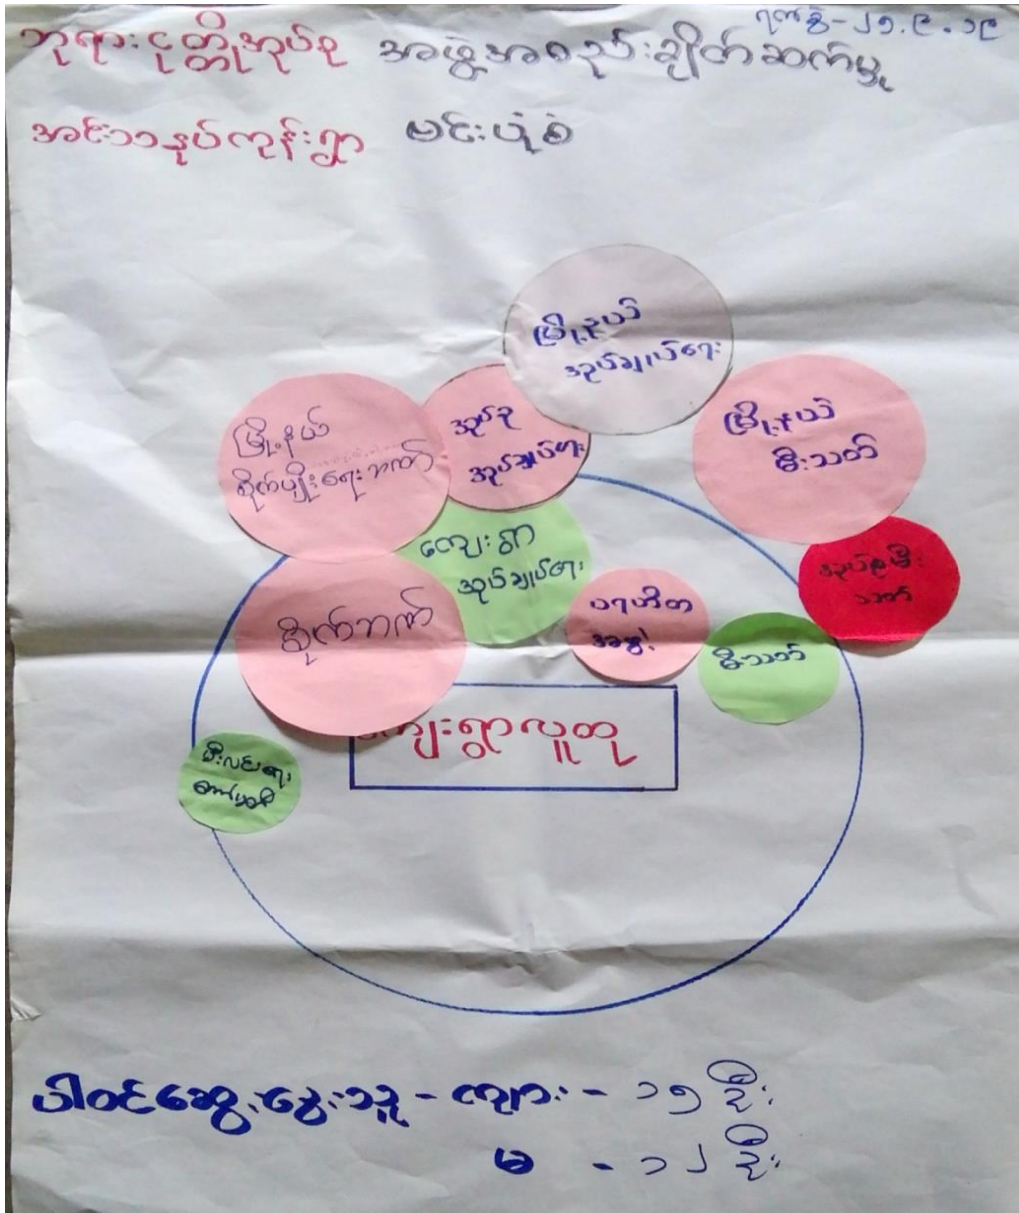 ရက်စွဲ-၂၅.၉.၁၉
ဘုရားငုတ္တိုအုပ်စု အဖွဲ့အစည်းချိတ်ဆက်မှု
အင်းသာနုပ်ကုန်းရွာ မင်းပုံစံ
မြို့နယ်
အုပ်ချုပ်ရေး
မြို့နယ်
စိုက်ပျိုးရေးဘဏ်
အုပ်စု
အုပ်ချုပ်ရေး
မြို့နယ်
မီးသတ်
ကျေးရွာ
အုပ်ချုပ်ရေး
အုပ်စုမီး
သတ်
စိုက်ဘဏ်
ပရဟိတ
အဖွဲ့
မီးသတ်
ကျေးရွာလူထု
မီးလင်းရေး
ကော်မတီ
ပါဝင်ဆွေးနွေးသူ - ကျား - ၁၅ ဦး
မ - ၁၂ ဦး